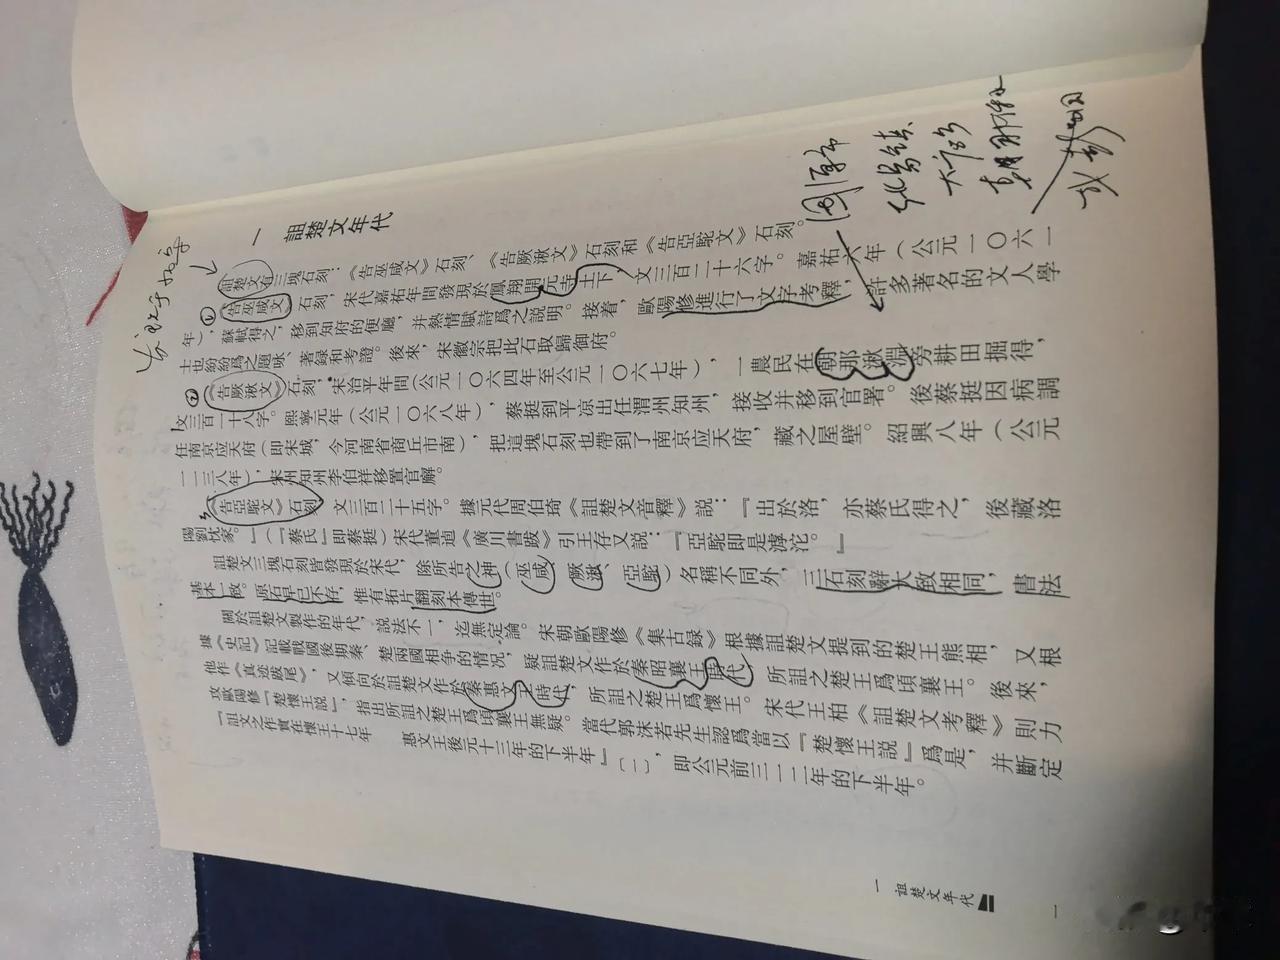 一 詛楚文年代
詛楚文有三塊石刻：《告巫咸文》石刻、《告厥湫文》石刻和《告亞駝文》石刻。
① 《告巫咸文》石刻，宋代嘉祐年間發現於鳳翔開元寺土下，文三百二十六字。嘉祐六年（公元一〇六一
年），蘇軾得之，移到知府的便廳，并熱情賦詩爲之説明。接着，歐陽修進行了文字考釋，許多著名的文人學
士也紛紛爲之題咏、著録和考證。後來，宋徽宗把此石取歸御府。
② 《告厥湫文》石刻，宋治平年間（公元一〇六四年至公元一〇六七年），一農民在朝那湫淵旁耕田掘得，
文三百一十八字。熙寧元年（公元一〇六八年），蔡挺到平凉出任渭州知州，接收并移到官署。後蔡挺因病調
任南京应天府（即宋城，今河南省商丘市南），把這塊石刻也帶到了南京应天府，藏之屋壁。紹興八年（公元
一一三八年），宋州知州李伯祥移置官廨。
《告亞駝文》石刻，文三百二十五字。據元代周伯琦《詛楚文音釋》説：『出於洛，亦蔡氏得之，後藏洛
陽劉忱家。』（『蔡氏』即蔡挺）宋代董逌《廣川書跋》引王存乂説：『亞駝即是滹沱。』
詛楚文三塊石刻皆發現於宋代，除所告之神（巫咸、厥湫、亞駝）名稱不同外，三石刻辭大致相同，書法
基本一致。原石早已不存，惟有拓片翻刻本傳世。
關於詛楚文製作的年代，説法不一，迄無定論。宋朝歐陽修《集古録》根據詛楚文提到的楚王熊相，又根
據《史記》記載戰國後期秦、楚兩國相争的情况，疑詛楚文作於秦昭襄王時代，所詛之楚王爲頃襄王。後來，
他作《真迹跋尾》，又傾向於詛楚文作於秦惠文王時代，所詛之楚王爲懷王。宋代王柏《詛楚文考釋》則力
攻歐陽修『楚懷王説』，指出所詛之楚王爲頃襄王無疑。當代郭沫若先生認爲當以『楚懷王説』爲是，并斷定
『詛文之作實在懷王十七年 惠文王後元十三年的下半年』（一），即公元前三一二年的下半年。
一 詛楚文年代
一